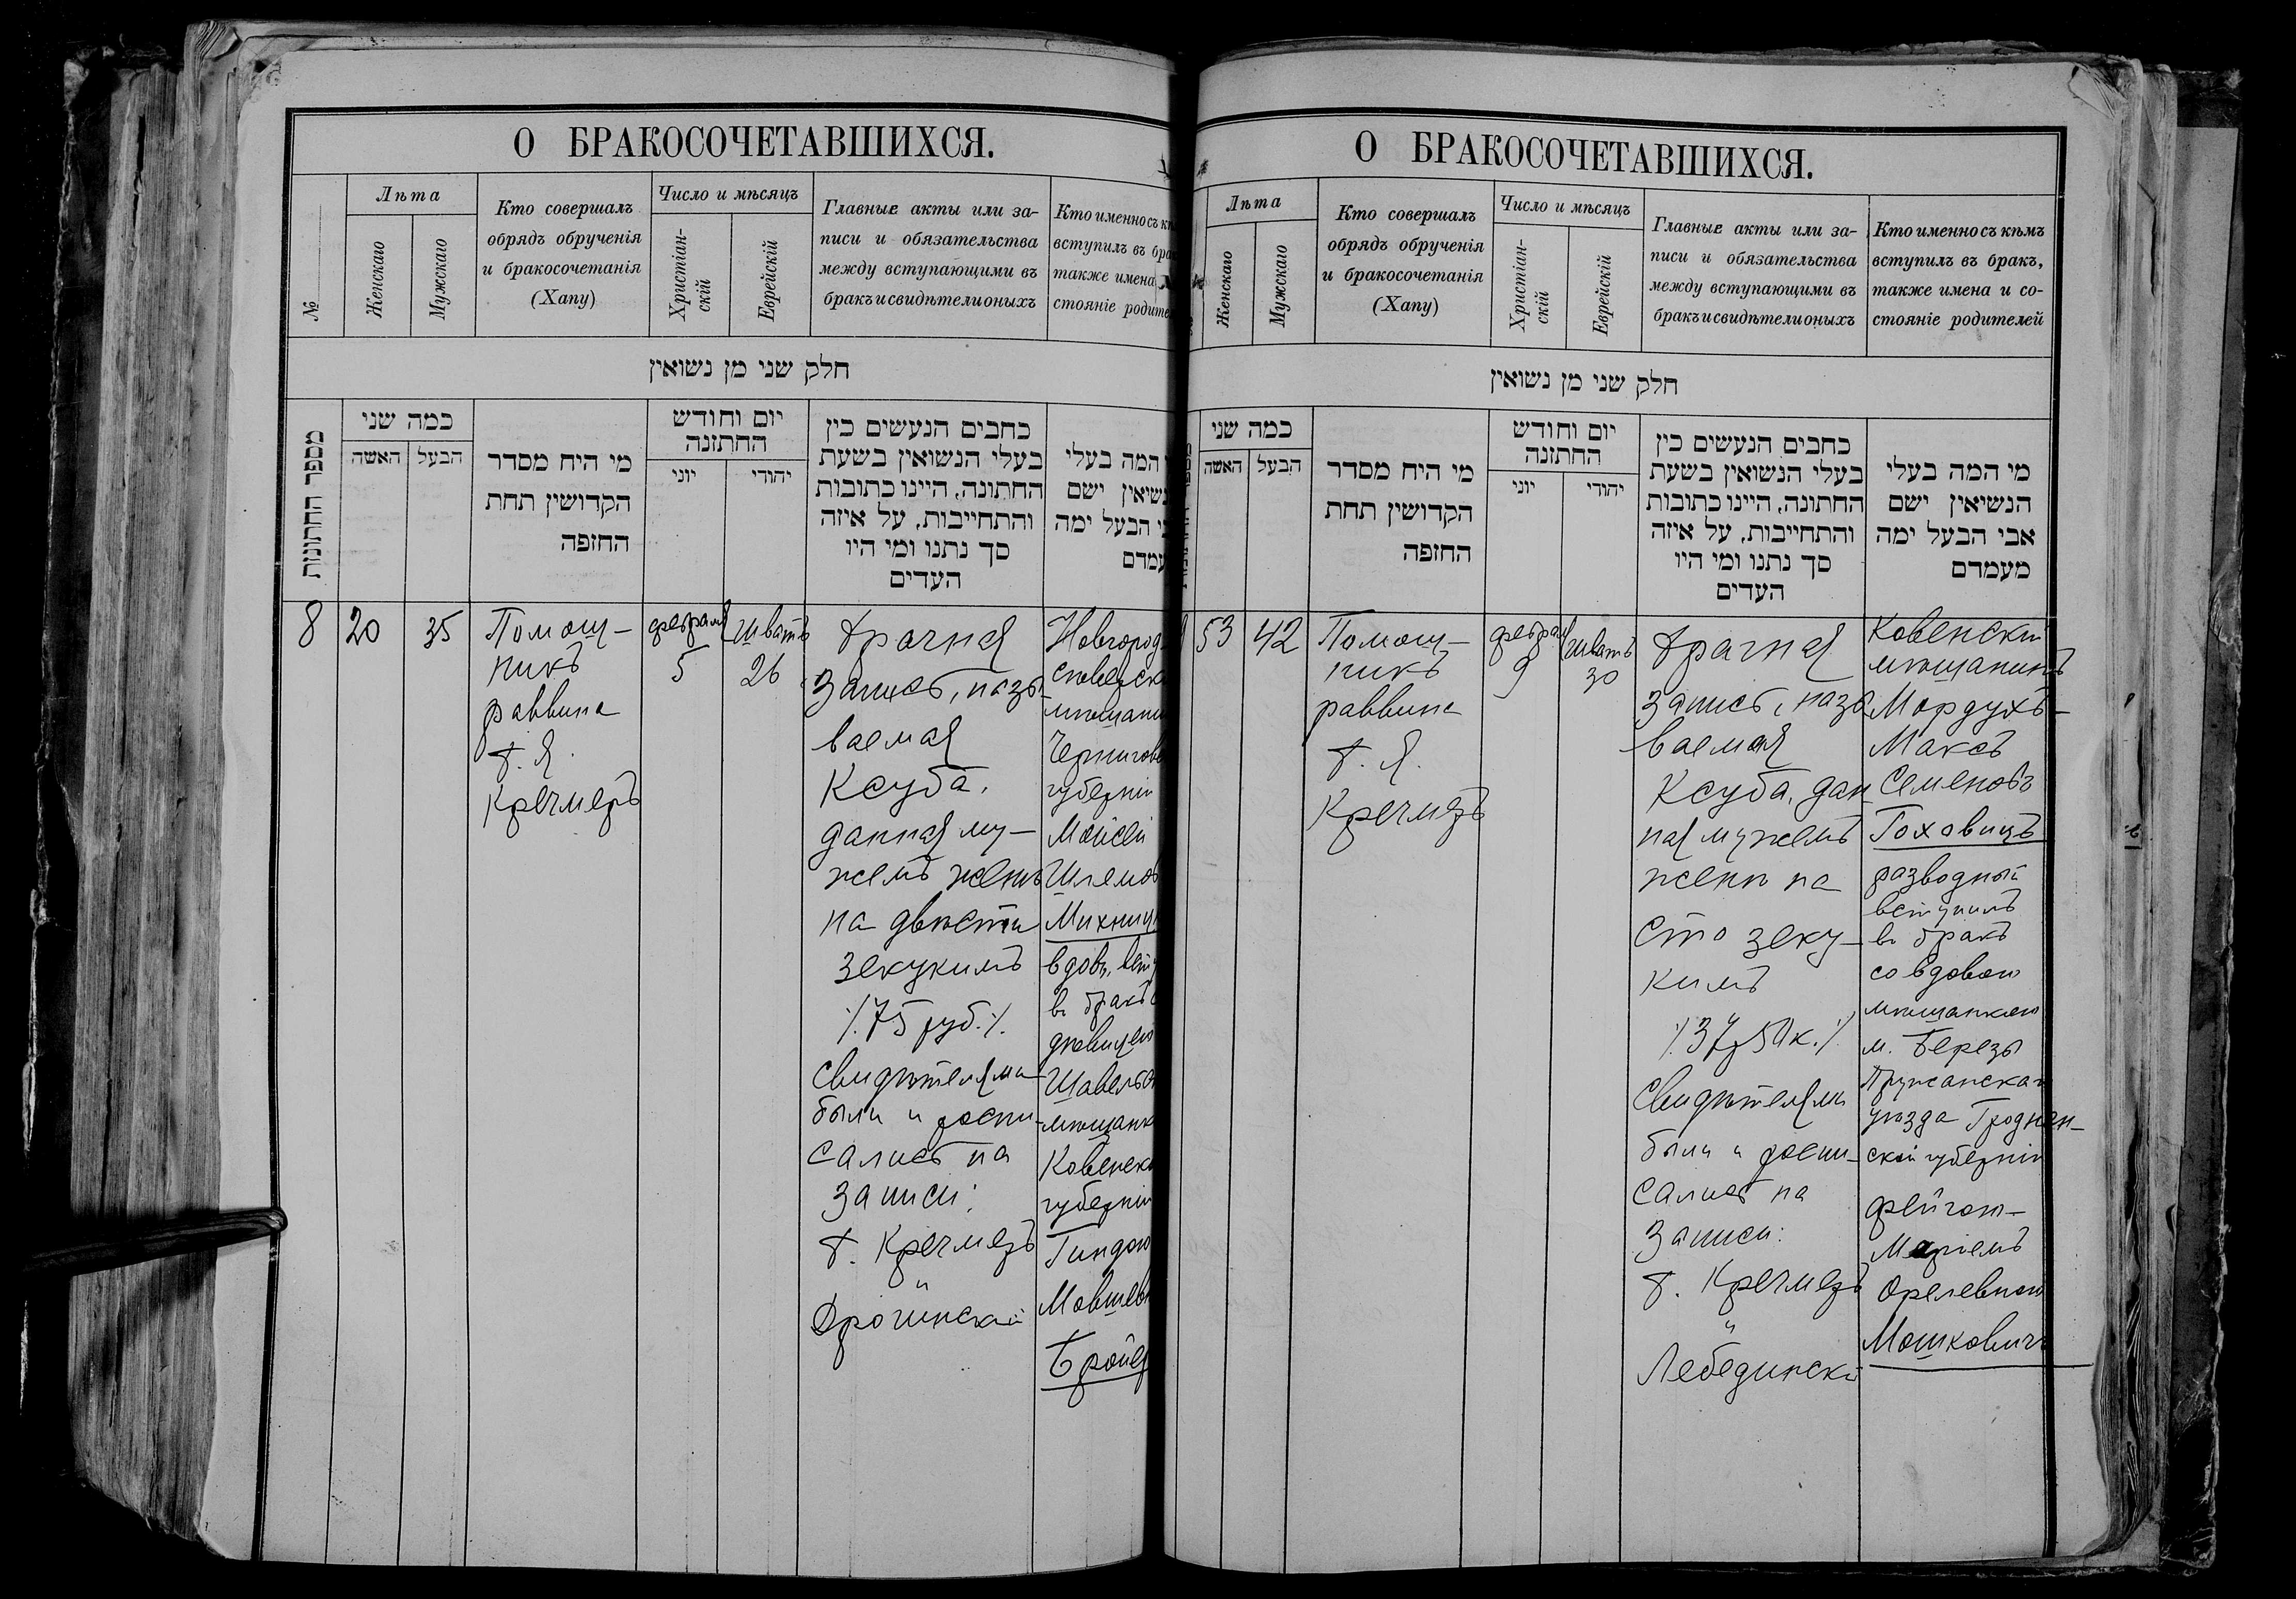 О БРАКОСОЧЕТАВШИХСЯ.
№
Лѣта
Женскаго
Мужскаго
Кто совершалъ
обрядъ обрученія
и бракосочетанія
(Хапу)
Число и мѣсяцъ
Христіан-
скій
Еврейскій
Главные акты или за-
писи и обязательства
между вступающими въ
бракъ и свидѣтели оныхъ
Кто именно съ кѣ
вступилъ въ бра
также имена
стояніе родите
חלק שני מן נשואין
מספר החתונות
כמה שני
האשה
הבעל
מי היח מסדר
הקדושין תחת
החופה
יום וחודש
החתונה
יוני
יהודי
כחבים הנעשים כין
בעלי הנשואין בשעת
החתונה, היינו כתובות
והתחייבות, על איזה
סך נתנו ומי היו
העדים
המה בעלי
נשיאין ישם
הבעל ימה
עמדם
8
20
35
Помощ-
никъ
раввина
Б. Я.
Кречмеръ
февраля
5
Шватъ
26
Брачная
запись, назы-
ваемая
Ксуба,
данная му-
жемъ женѣ
на двѣсти
зекукимъ
/.75 руб./.
Свидѣтелями
были и роспи-
сались на
записи:
Б. Кречмеръ
и
Дрогинскій
Новгород-
сѣверск
мѣщани
Чернигов
губерніи
Мойсей
Шлемов
Михниц
вдов, вст
въ бракъ
дѣвицею
Шавельс
мѣщанк
Ковенск
губерніи
Гиндою
Мовшев
Бройд
О БРАКОСОЧЕТАВШИХСЯ.
Лѣта
Женскаго
Мужскаго
Кто совершалъ
обрядъ обрученія
и бракосочетанія
(Хапу)
Число и мѣсяцъ
Христіан-
скій
Еврейскій
Главные акты или за-
писи и обязательства
между вступающими въ
бракъ и свидѣтели оныхъ
Кто именно съ кѣмъ
вступилъ въ бракъ,
также имена и со-
стояніе родителей
חלק שני מן נשואין
כמה שני
האשה
הבעל
מי היח מסדר
הקדושין תחת
החופה
יום וחודש
החתונה
יוני
יהודי
כחבים הנעשים כין
בעלי הנשואין בשעת
החתונה, היינו כתובות
והתחייבות, על איזה
סך נתנו ומי היו
העדים
מי המה בעלי
הנשיאין ישם
אבי הבעל ימה
מעמדם
53
42
Помощ-
никъ
раввина
Б. Я.
Кречмеръ
февраля
9
Шватъ
30
Брачная
запись, назы
ваемая
Ксуба, дан
ная мужемъ
женѣ на
сто зеку-
кимъ
/.37р50к./.
Свидѣтелями
были и роспи-
сались на
записи:
Б. Кречмеръ
и
Лебединскій
Ковенскій
мѣщанинъ
Мордухъ-
Максъ
Семеновъ
Гоховицъ
разводный
вступилъ
въ бракъ
со вдовою
мѣщанкою
м. Березы
Пружанскаго
уѣзда Гроднен-
ской губерніи
Фейгою-
Маріемъ
Орелевною
Мошковичъ